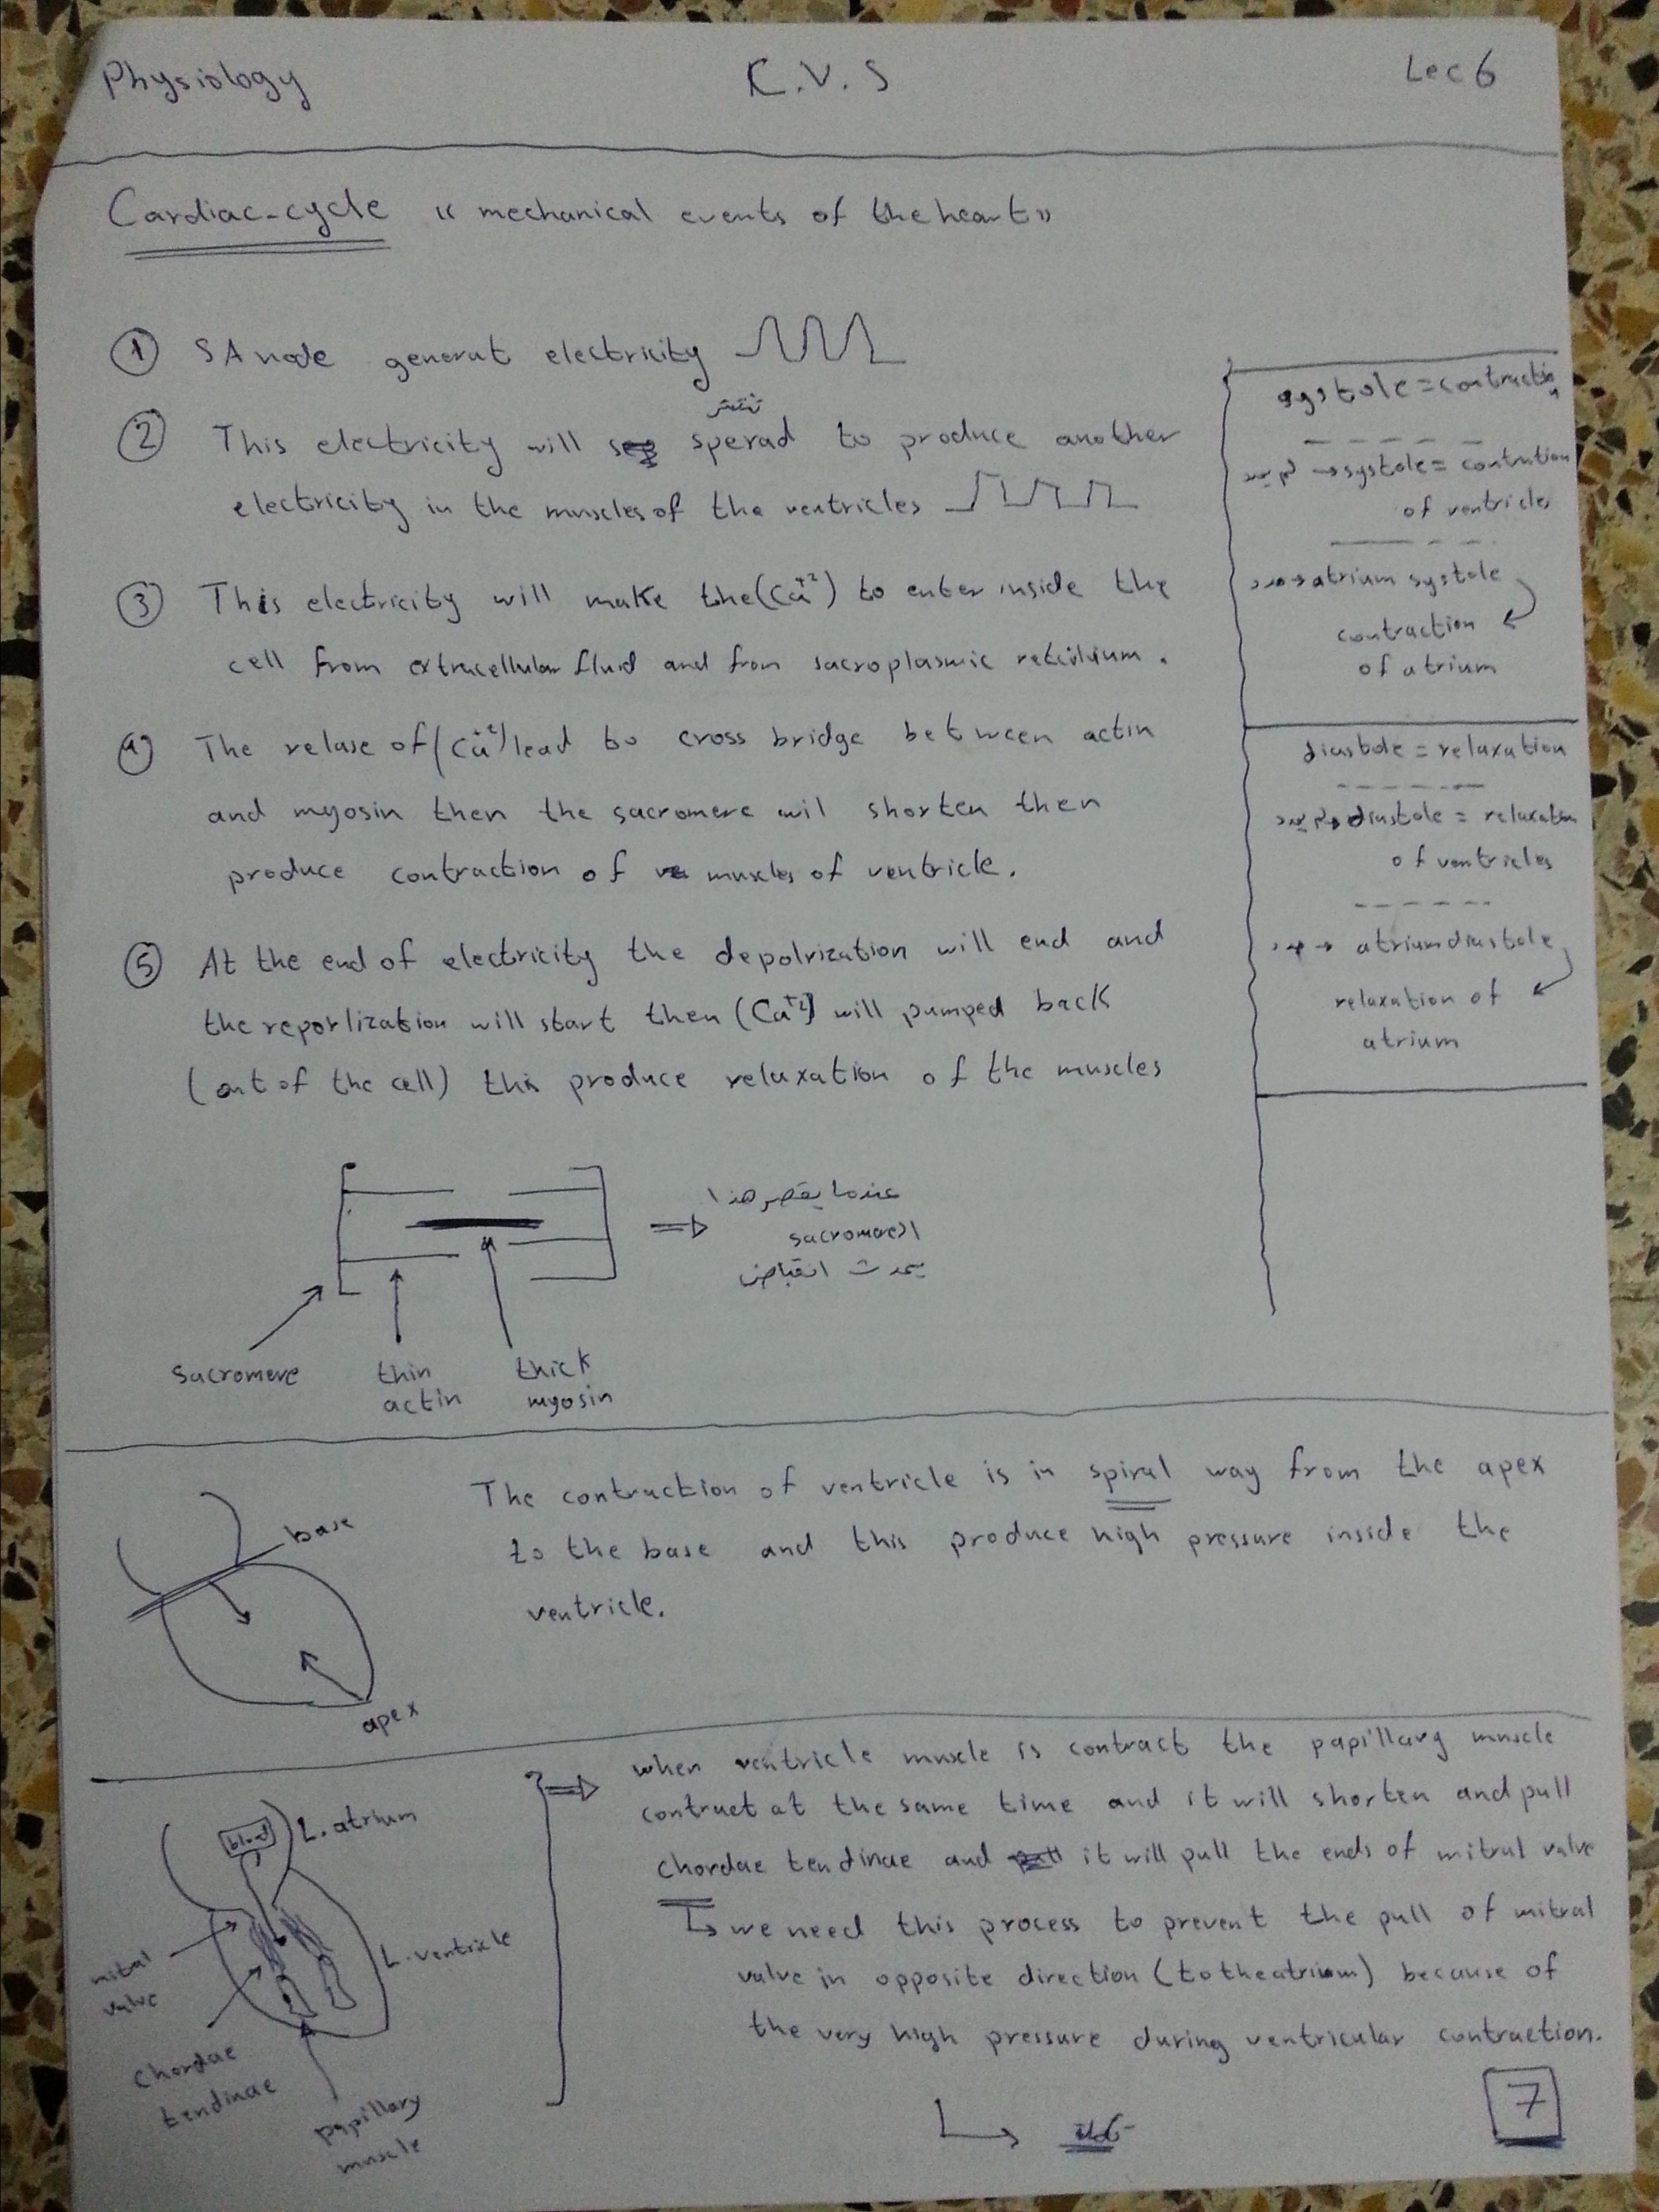 Physiology
C.V.S
Lec 6
Cardiac-cycle « mechanical events of the heart »
① SA node generat electricity
تنتشر
② This electricity will sperad to produce another
electricity in the muscles of the ventricles
③ This electricity will make the (Ca+2) to enter inside the
cell from extracellular fluid and from sacroplasmic
④ The relase of (Ca+2) lead to cross bridge between actin
and myosin then the sacromere wil shorten then
produce contraction of muscles of ventricle.
⑤ At the end of electricity the depolrization will end and
the reporlization will start then (Ca+2) will pumped back
(out of the cell) this produce relaxation of the muscles
systole = contraction
→ systole = contrution
of ventricles
→ atrium systole
contraction
of atrium
diastole = relaxation
→ diastole = relaxation
of ventricles
→ atrium diastole
relaxation of
atrium
عندما يقصر هذا
الـ sacromere
يحدث انقباض
sacromere
thin
actin
thick
myosin
base
apex
The contraction of ventricle is in spiral way from the apex
to the base and this produce high pressure inside the
ventricle.
blood
L. atrium
L. ventricle
mital
valve
chordae
tendinae
papillary
muscle
⇒ when ventricle muscle is contract the papillary muscle
contract at the same time and it will shorten and pull
chordae tendinae and it will pull the ends of mitral valve
↳ we need this process to prevent the pull of mitral
valve in opposite direction (to the atrium) because of
the very high pressure during ventricular contraction.
7